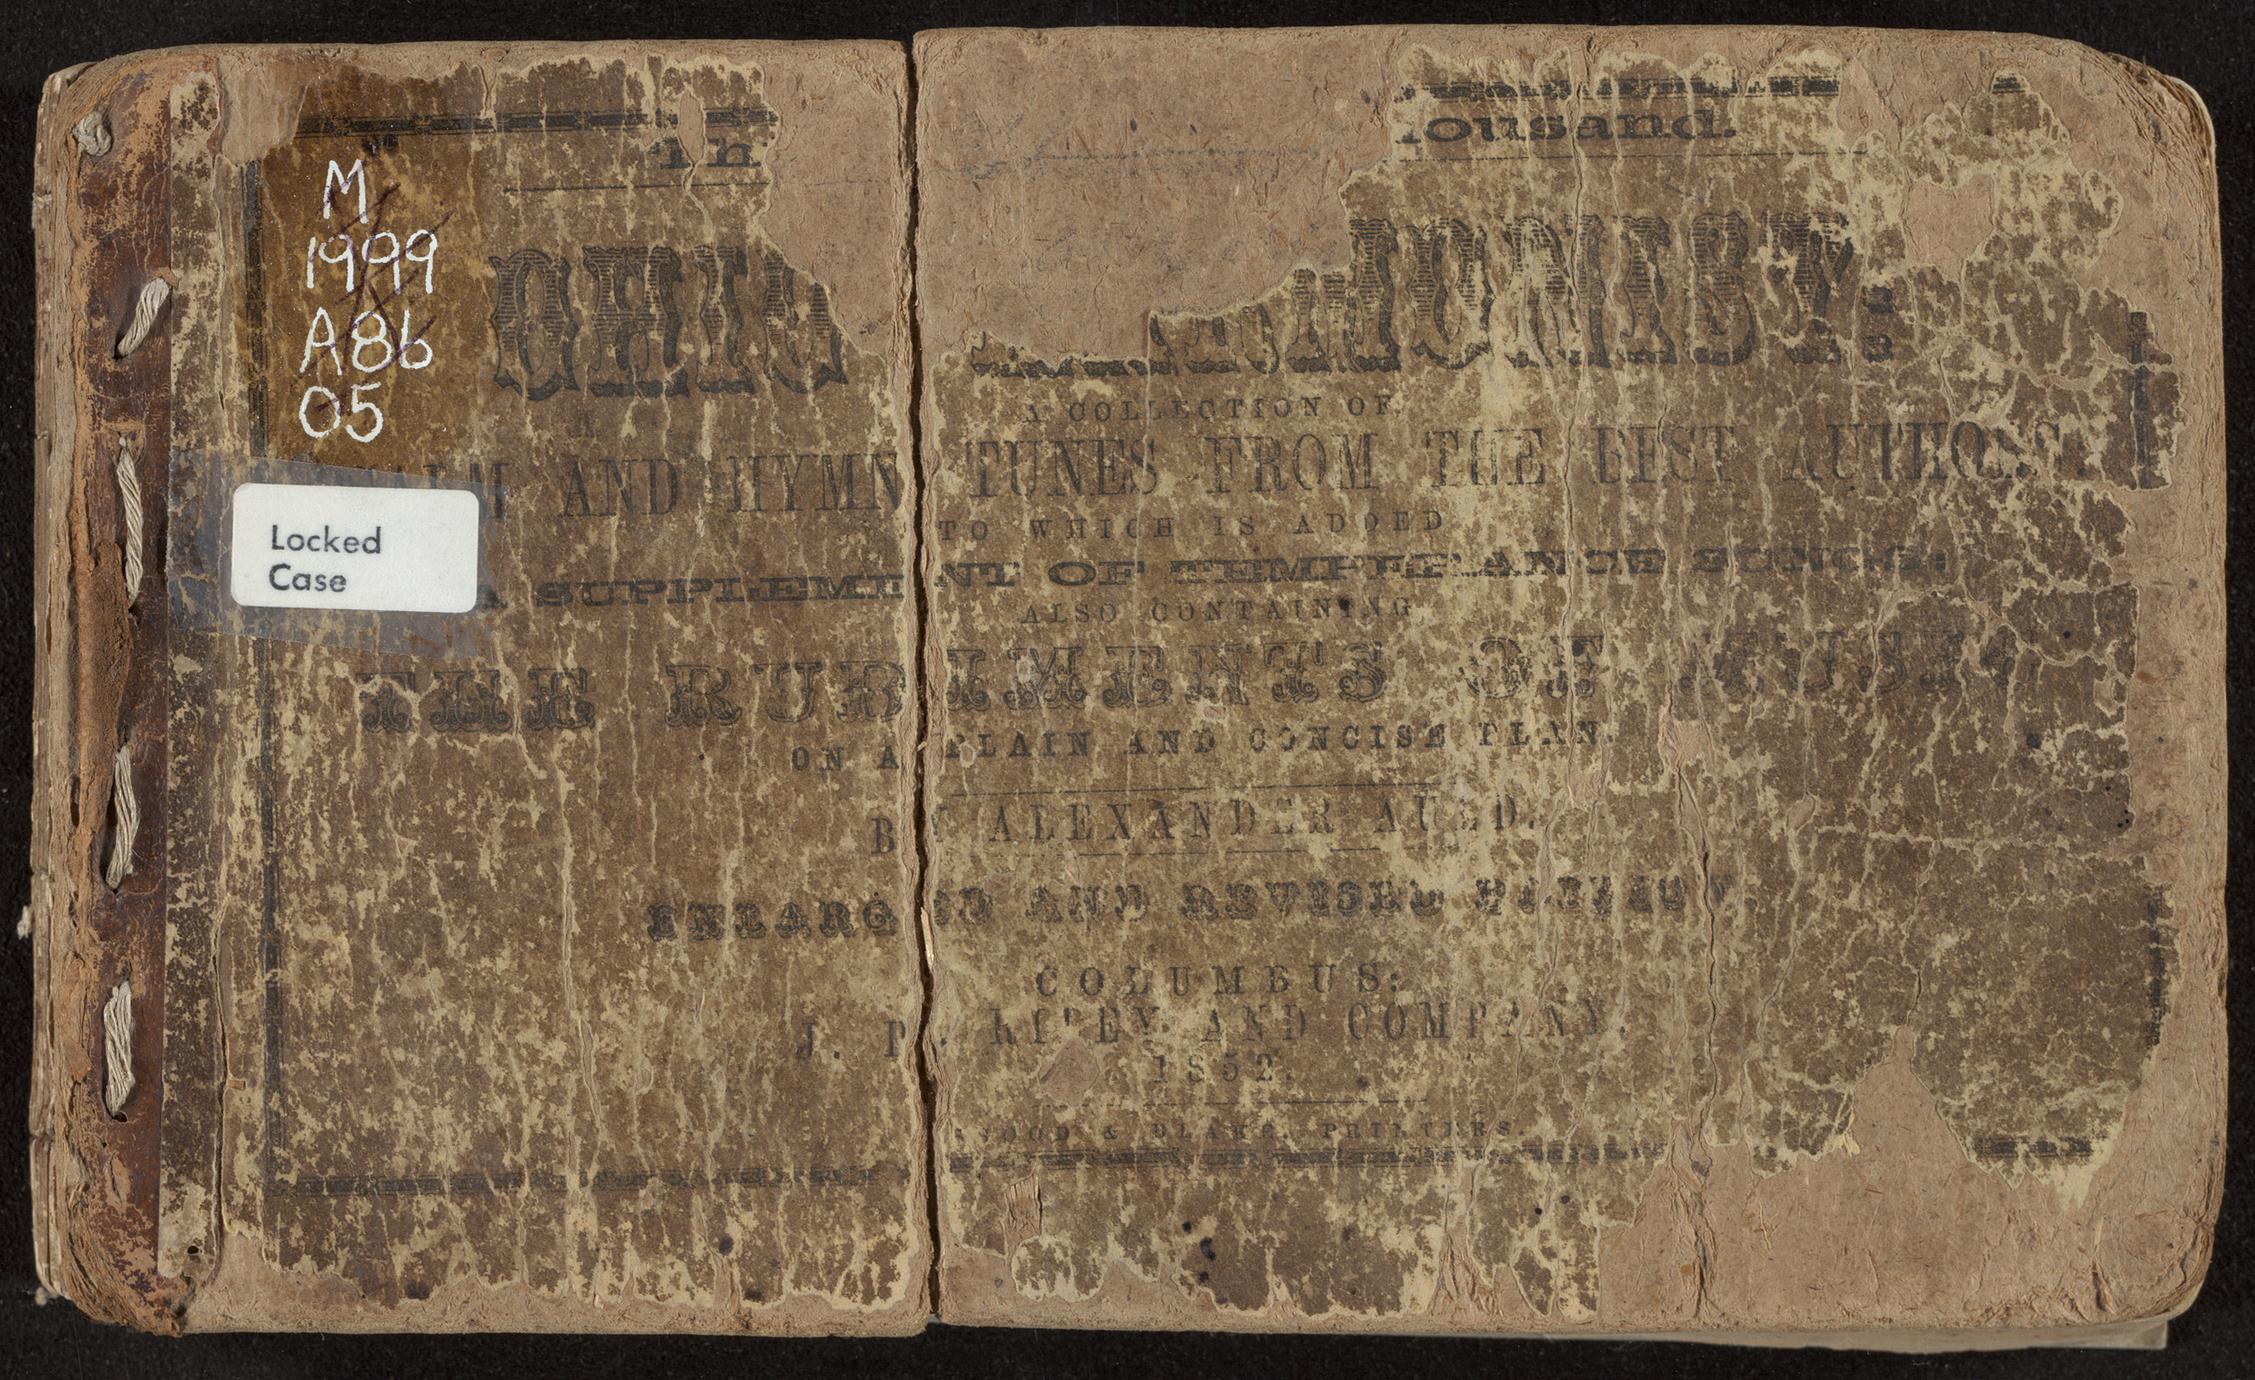 M
1999
A86
05
Locked
Case
Th ousand.
OHIO HARMONIST:
A COLLECTION OF
PSALM AND HYMN TUNES FROM THE BEST AUTHORS
TO WHICH IS ADDED
A SUPPLEMENT OF TEMPERANCE SONGS:
ALSO CONTAINING
THE RUDIMENTS OF MUSIC
ON A PLAIN AND CONCISE PLAN.
BY ALEXANDER AULD.
ENLARGED AND REVISED EDITION
COLUMBUS:
J. H. RILEY AND COMPANY.
1852.
& BLAKE, PRINTERS.